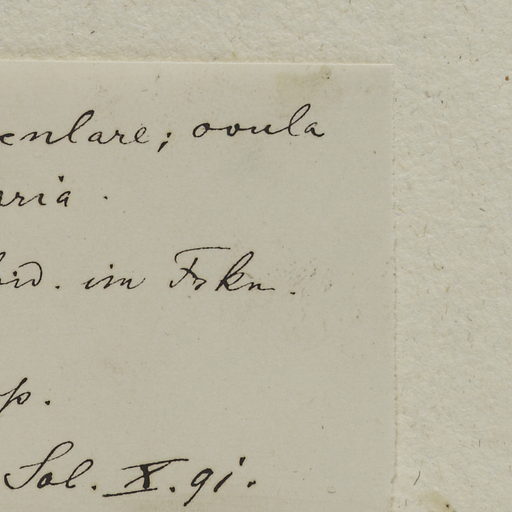 enlare; ovula
aria.
bid. im Frkn.
p.
Sol. X. 91.